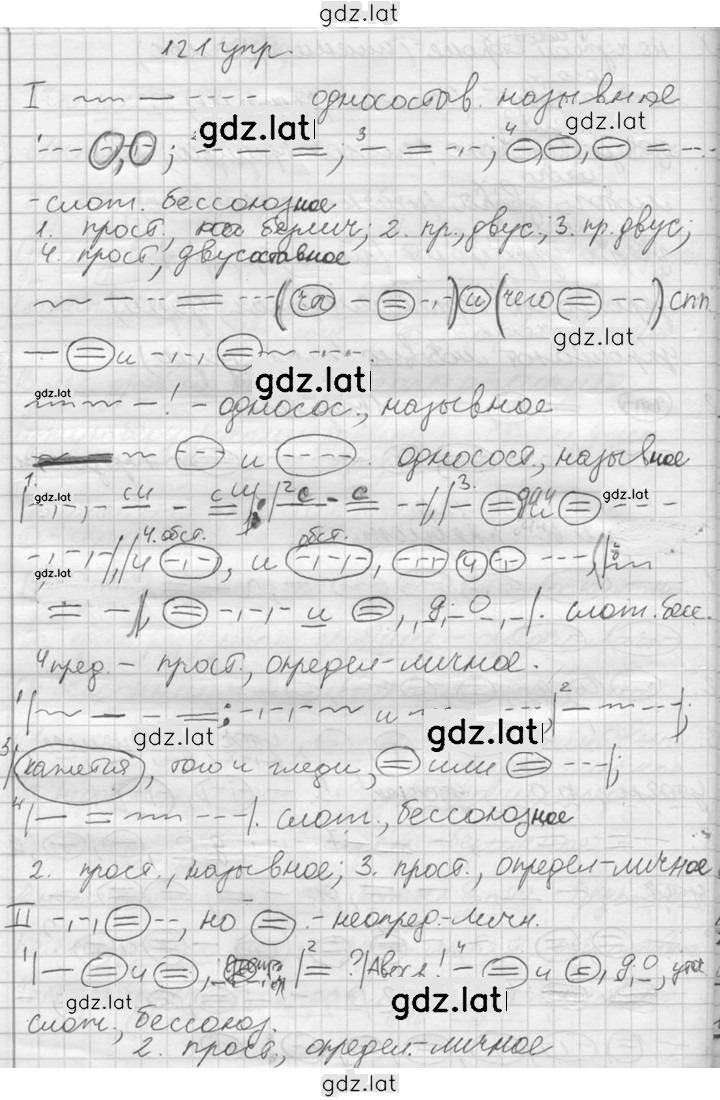 gdz.lat
121 упр.
I односостав. назывное
gdz.lat
gdz.lat
1 ; 2 ; 3 ; 4
- слож. бессоюзное
1. прост., безлич; 2. пр., двус.; 3. пр. двус.;
4. прост, двусоставное
( - ) и (чего ) спп.
gdz.lat
и
gdz.lat
gdz.lat
! - односос., назывное
и . односост, назывное
1. gdz.lat 2 3. gdz.lat
4. обст. и обст.
gdz.lat
и , слож. бесс.
4 пред. - прост., определ-личное.
1 ; и 2
gdz.lat
gdz.lat
3 кажется, того и гляди, или ;
4 . слож., бессоюзное
2. прост., назывное; 3. прост., определ-личное
II , но . - неопред.-личн.
1 и , 2 ?/ А вот и! 4 и
gdz.lat
gdz.lat
слож., бессоюз.
2. прост., определ.-личное
gdz.lat